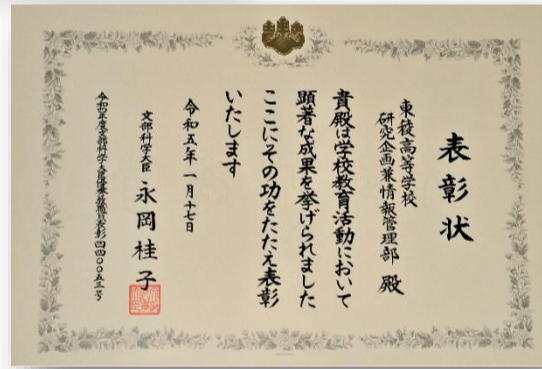 表彰状
東稜高等学校
研究企画兼情報管理部 殿
貴殿は学校教育活動において
顕著な成果を挙げられました
ここにその功をたたえ表彰
いたします
令和五年一月十七日
文部科学大臣 永岡桂子
令和四年度文部科学大臣優秀教職員表彰四四〇〇五三号